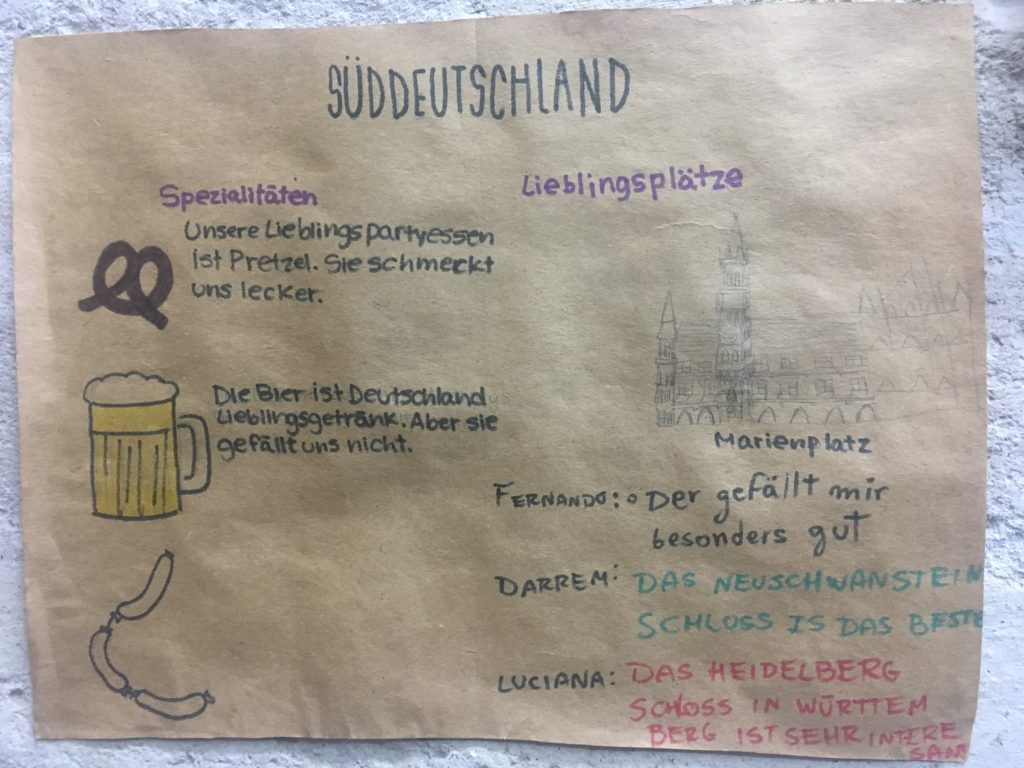 SÜDDEUTSCHLAND
Spezialitäten
Unsere Lieblingspartyessen
ist Pretzel. Sie schmeckt
uns lecker.
Die Bier ist Deutschland
Lieblingsgetränk. Aber sie
gefällt uns nicht.
Lieblingsplätze
Marienplatz
FERNANDO: Der gefällt mir
besonders gut
DARREM: DAS NEUSCHWANSTEIN
SCHLOSS IS DAS BESTE
LUCIANA: DAS HEIDELBERG
SCHLOSS IN WÜRTTEM
BERG IST SEHR INTERE
SAM